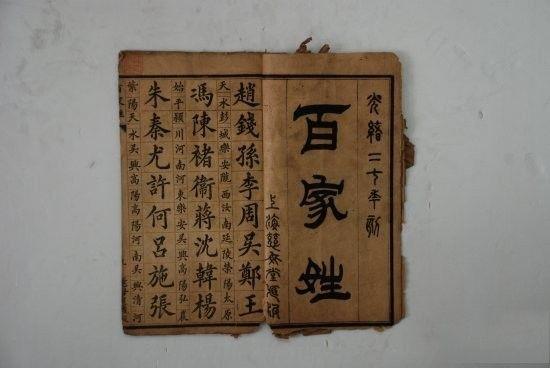 光緒二七年新
百家姓
趙錢孫李周吳鄭王
天水彭城樂安隴西汝南延陵滎陽太原
馮陳褚衞蔣沈韓楊
始平穎川河南河東樂安吳興南陽弘農
朱秦尤許何呂施張
紫陽天水吳興高陽高陽河南吳興清河